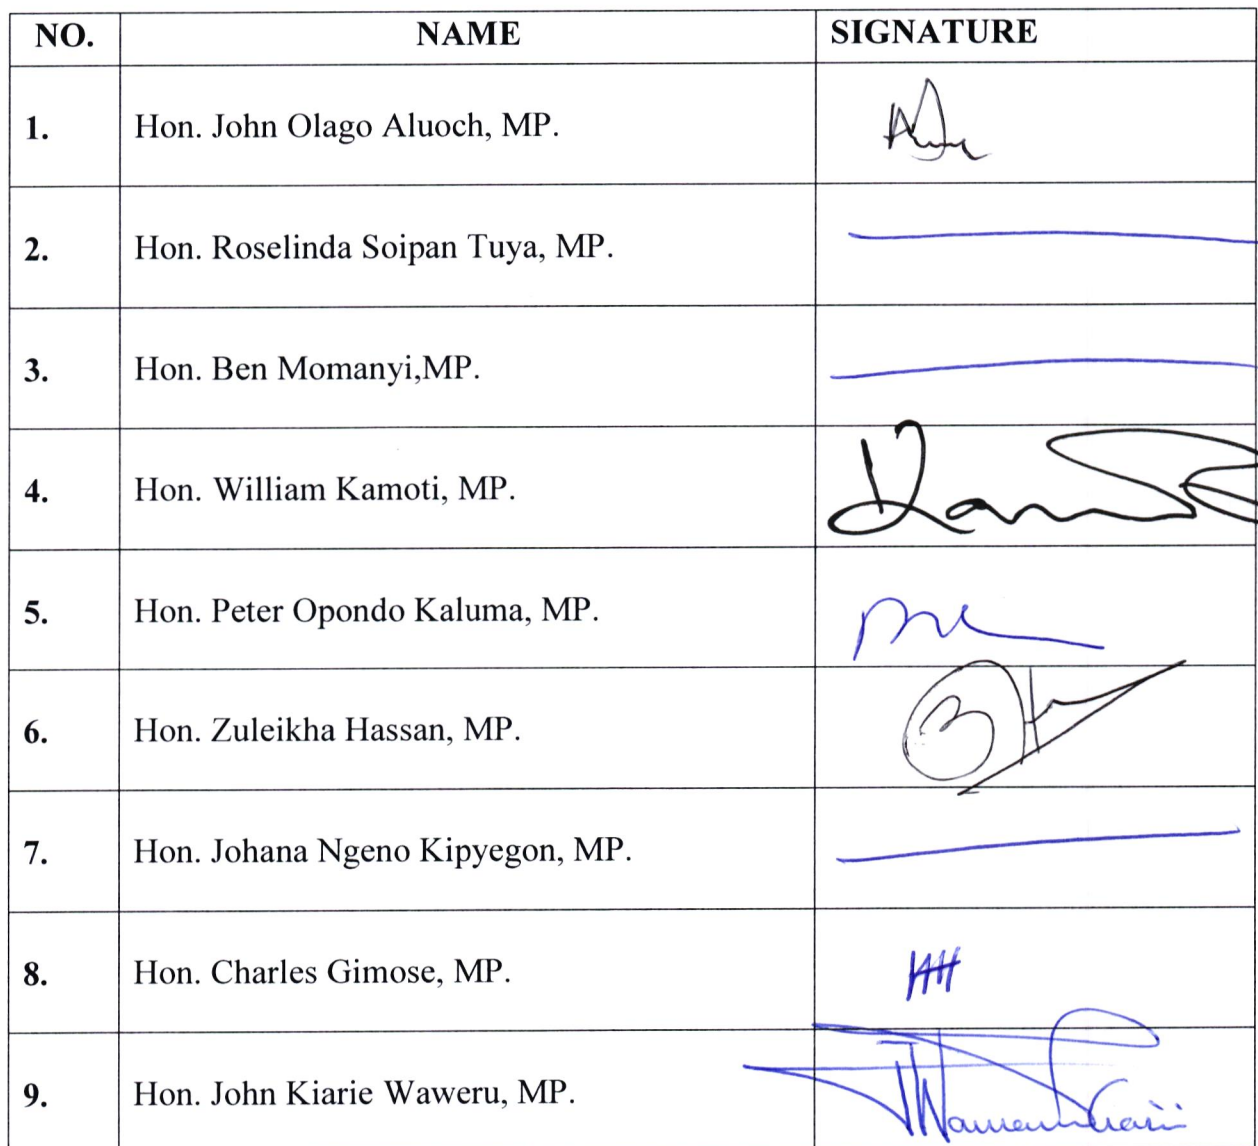 NO. NAME SIGNATURE
1. Hon. John Olago Aluoch, MP.
2. Hon. Roselinda Soipan Tuya, MP.
3. Hon. Ben Momanyi,MP.
4. Hon. William Kamoti, MP.
5. Hon. Peter Opondo Kaluma, MP.
6. Hon. Zuleikha Hassan, MP.
7. Hon. Johana Ngeno Kipyegon, MP.
8. Hon. Charles Gimose, MP.
9. Hon. John Kiarie Waweru, MP.